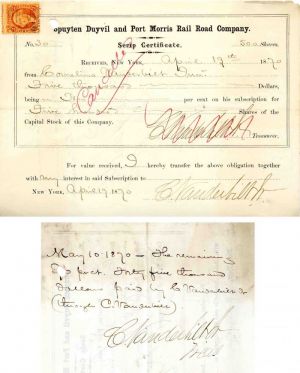 Spuyten Duyvil and Port Morris Rail Road Company.
Scrip Certificate.
No. 30 500 Shares.
Received, New York, April 19th 1870
from Cornelius Vanderbilt Jun.
Five thousand Dollars,
being per cent on his subscription for
Five hundred Shares of the
Capital Stock of this Company.
Treasurer.
For value received, I hereby transfer the above obligation together
with my interest in said Subscription to
New York, April 19 1870
C. Vanderbilt Jr
May 10 1870 - The remaining
pr ct. Forty five thousand
dollars paid by C Vanderbilt Jr
(through C. Vanderbilt)
C Vanderbilt Jr